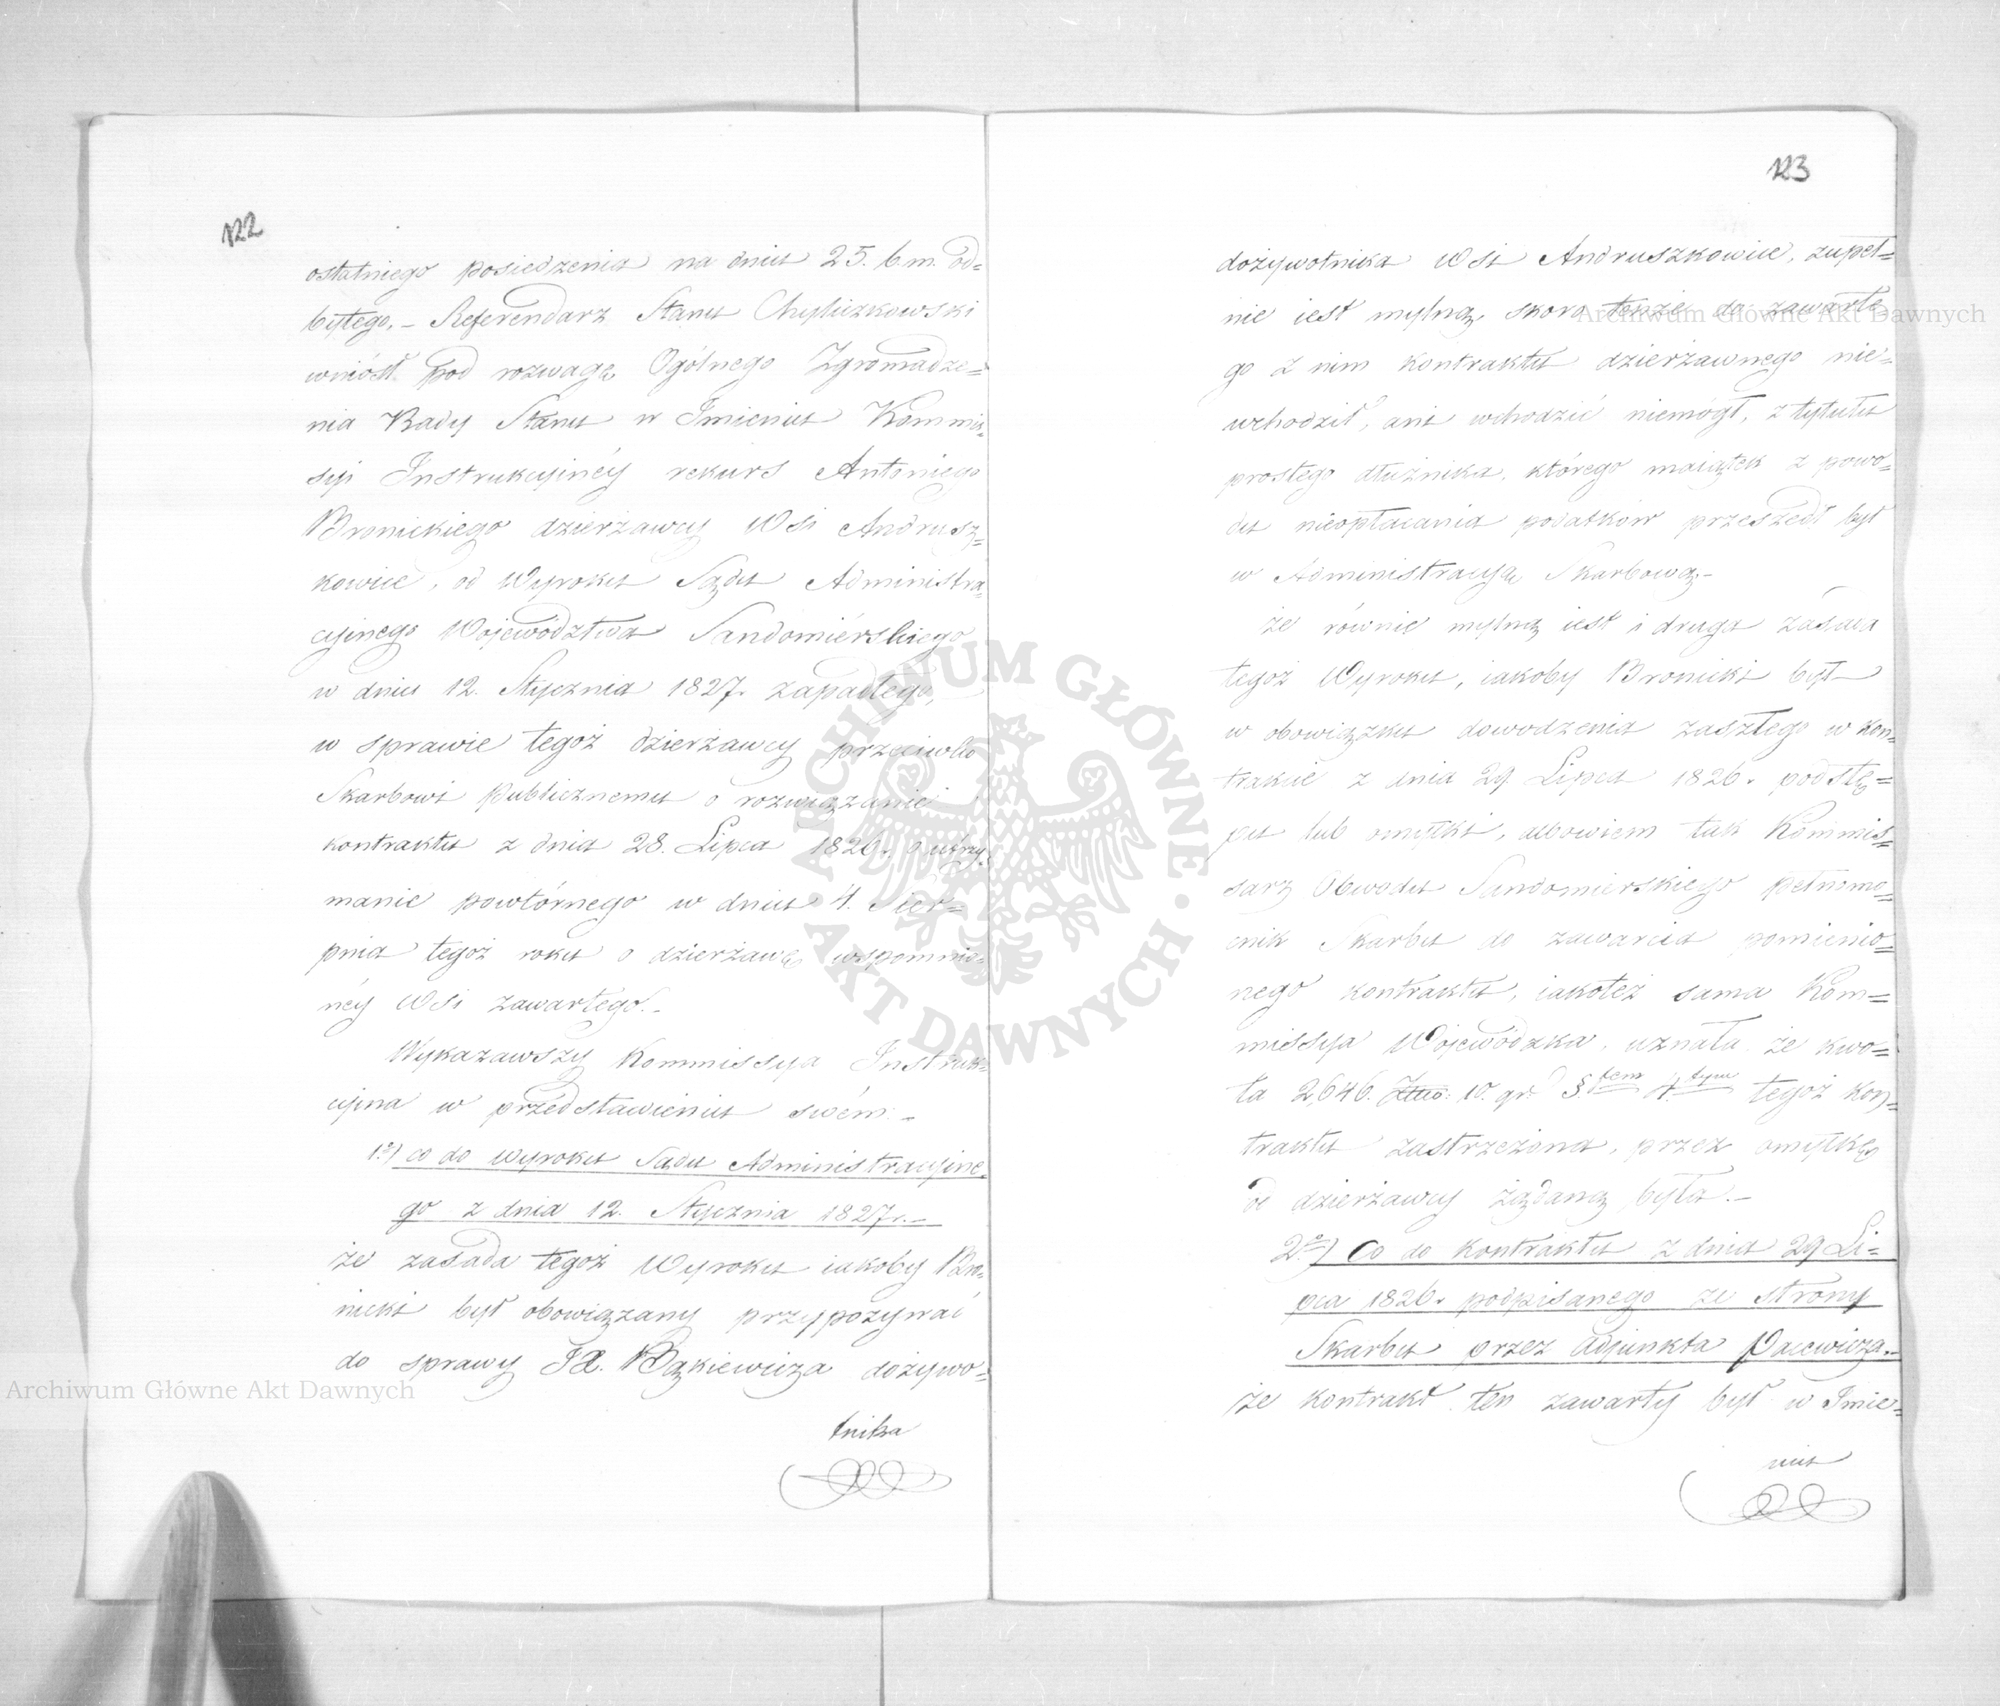 122
ostatniego posiedzenia na dniu 25. b.m. od=
bytego. – Referendarz Stanu Chyliczkowski
wniósł pod rozwagę Ogólnego Zgromadze=
nia Rady Stanu w Imieniu Kommis=
syi Instrukcyinéy rekurs Antoniego
Bronickiego dzierżawcy Wsi Andrusz=
kowice, od Wyroku Sądu Administra=
cyinego Województwa Sandomiérskiego
w dniu 12. Stycznia 1827r. zapadłego,
w sprawie tegoż dzierżawcy przeciwko
Skarbowi Publicznemu o rozwiązanie
kontraktu z dnia 28. Lipca 1826r. o utrzy=
manie powtórnego w dniu 4. Sier=
pnia tegoż roku o dzierżawę wspomnio=
néy Wsi zawartego. –
Wykazawszy Kommissya Instruk=
cyina w przedstawieniu swém. –
1o) co do wyroku Sądu Administracyine=
go z dnia 12. Stycznia 1827r. –
że zasada tegoż Wyroku iakoby Bro=
nicki był obowiązany przypozywać
do sprawy JX. Bąkiewicza dożywo=
tnika
123
dożywotnika Wsi Andruszkowice, zupeł=
nie iest mylną, skoro tenże do zawarte
go z nim kontraktu dzierżawnego nie=
wchodził, ani wchodzić niemógł, z tytułu
prostego dłużnika, którego maiątek z powo=
du nieopłacania podatków przeszedł był
w Administracyą Skarbową –
że równie mylną iest i druga zasada
tegoż Wyroku, iakoby Bronicki był –
w obowiązku dowodzenia zaszłego w kon=
trakcie z dnia 29. Lipca 1826r. podstę=
pu lub omyłki, albowiem tak Kommis=
sarz Obwodu Sandomierskiego pełnomo=
cnik Skarbu do zawarcia pomienio=
nego kontraktu, iakoteż sama Kom=
missya Wojewódzka, uznała że kwo=
ta 2,646. Złtto. 10. gr. §tem 4.tym tegoż kon=
traktu zastrzeżona, przez omyłkę
od dzierżawcy żądaną była. –
2o) Co do kontraktu z dnia 29 Li=
pca 1826r podpisanego ze strony
Skarbu przez Adjunkta Pacewicza. –
że kontrakt ten zawarty był w Imie=
niu
Archiwum Główne Akt Dawnych
Archiwum Główne Akt Dawnych
ARCHIWUM GŁÓWNE · AKT DAWNYCH ·